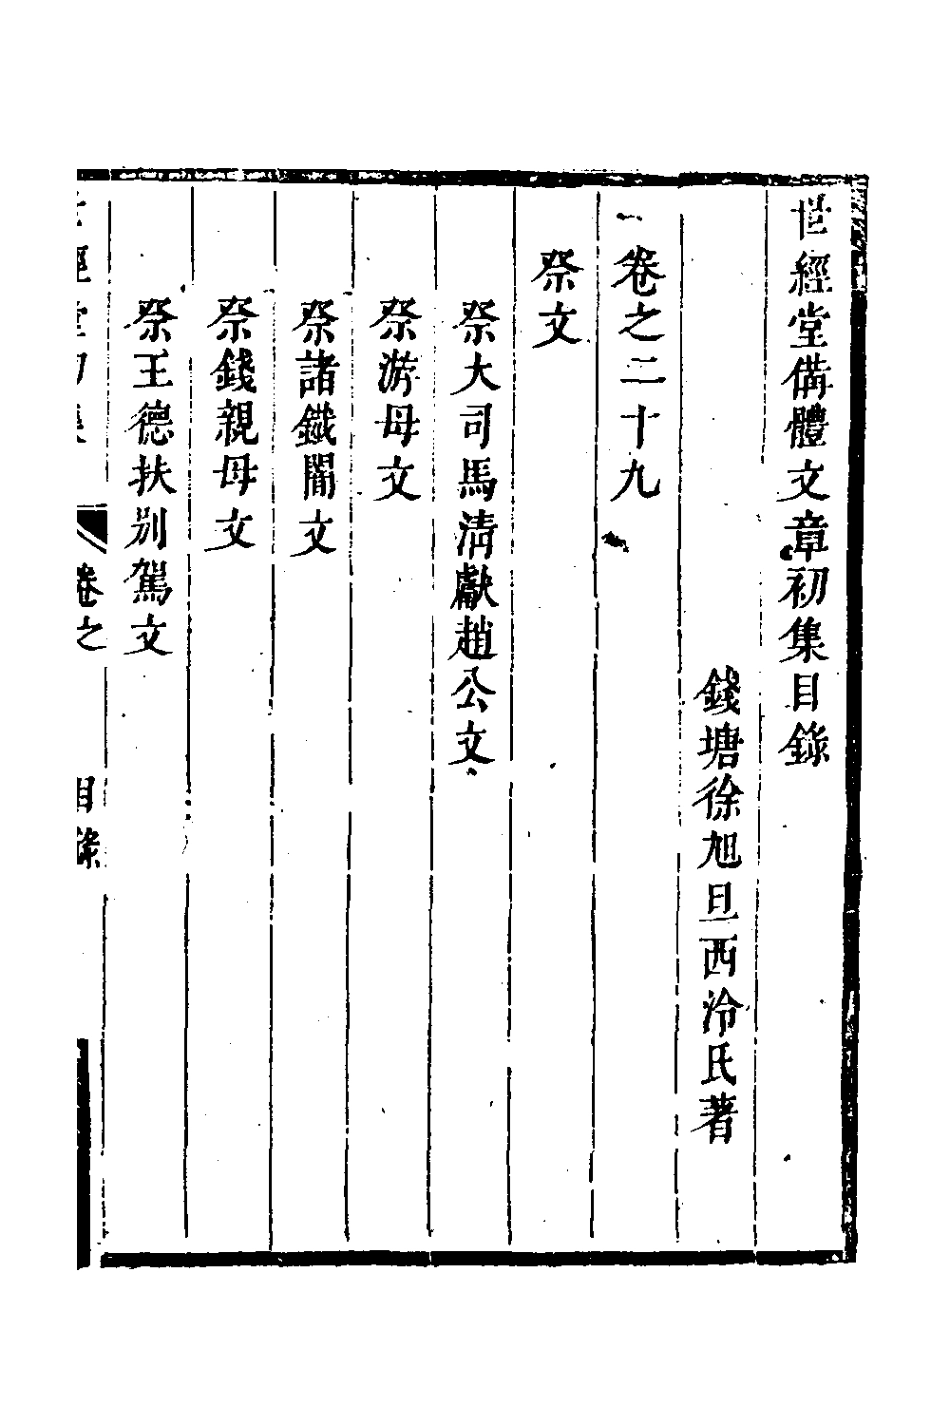 世經堂備體文章初集目錄
錢塘徐旭旦西泠氏著
卷之二十九
祭文
祭大司馬清獻趙公文
祭游母文
祭諸鐵闇文
祭錢親母文
祭王德扶别駕文
經堂初集
卷之
目錄